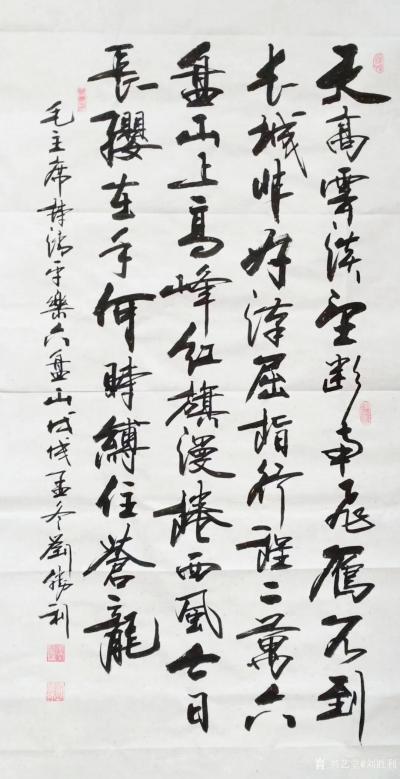 天高雲淡望斷南飛鴈不到
长城非好漢屈指行程二萬六
盘山上高峰红旗漫捲西風今日
長纓在手何時縛住蒼龍
毛主席詞清平樂六盘山戊戌孟冬劉勝利
@刘胜利